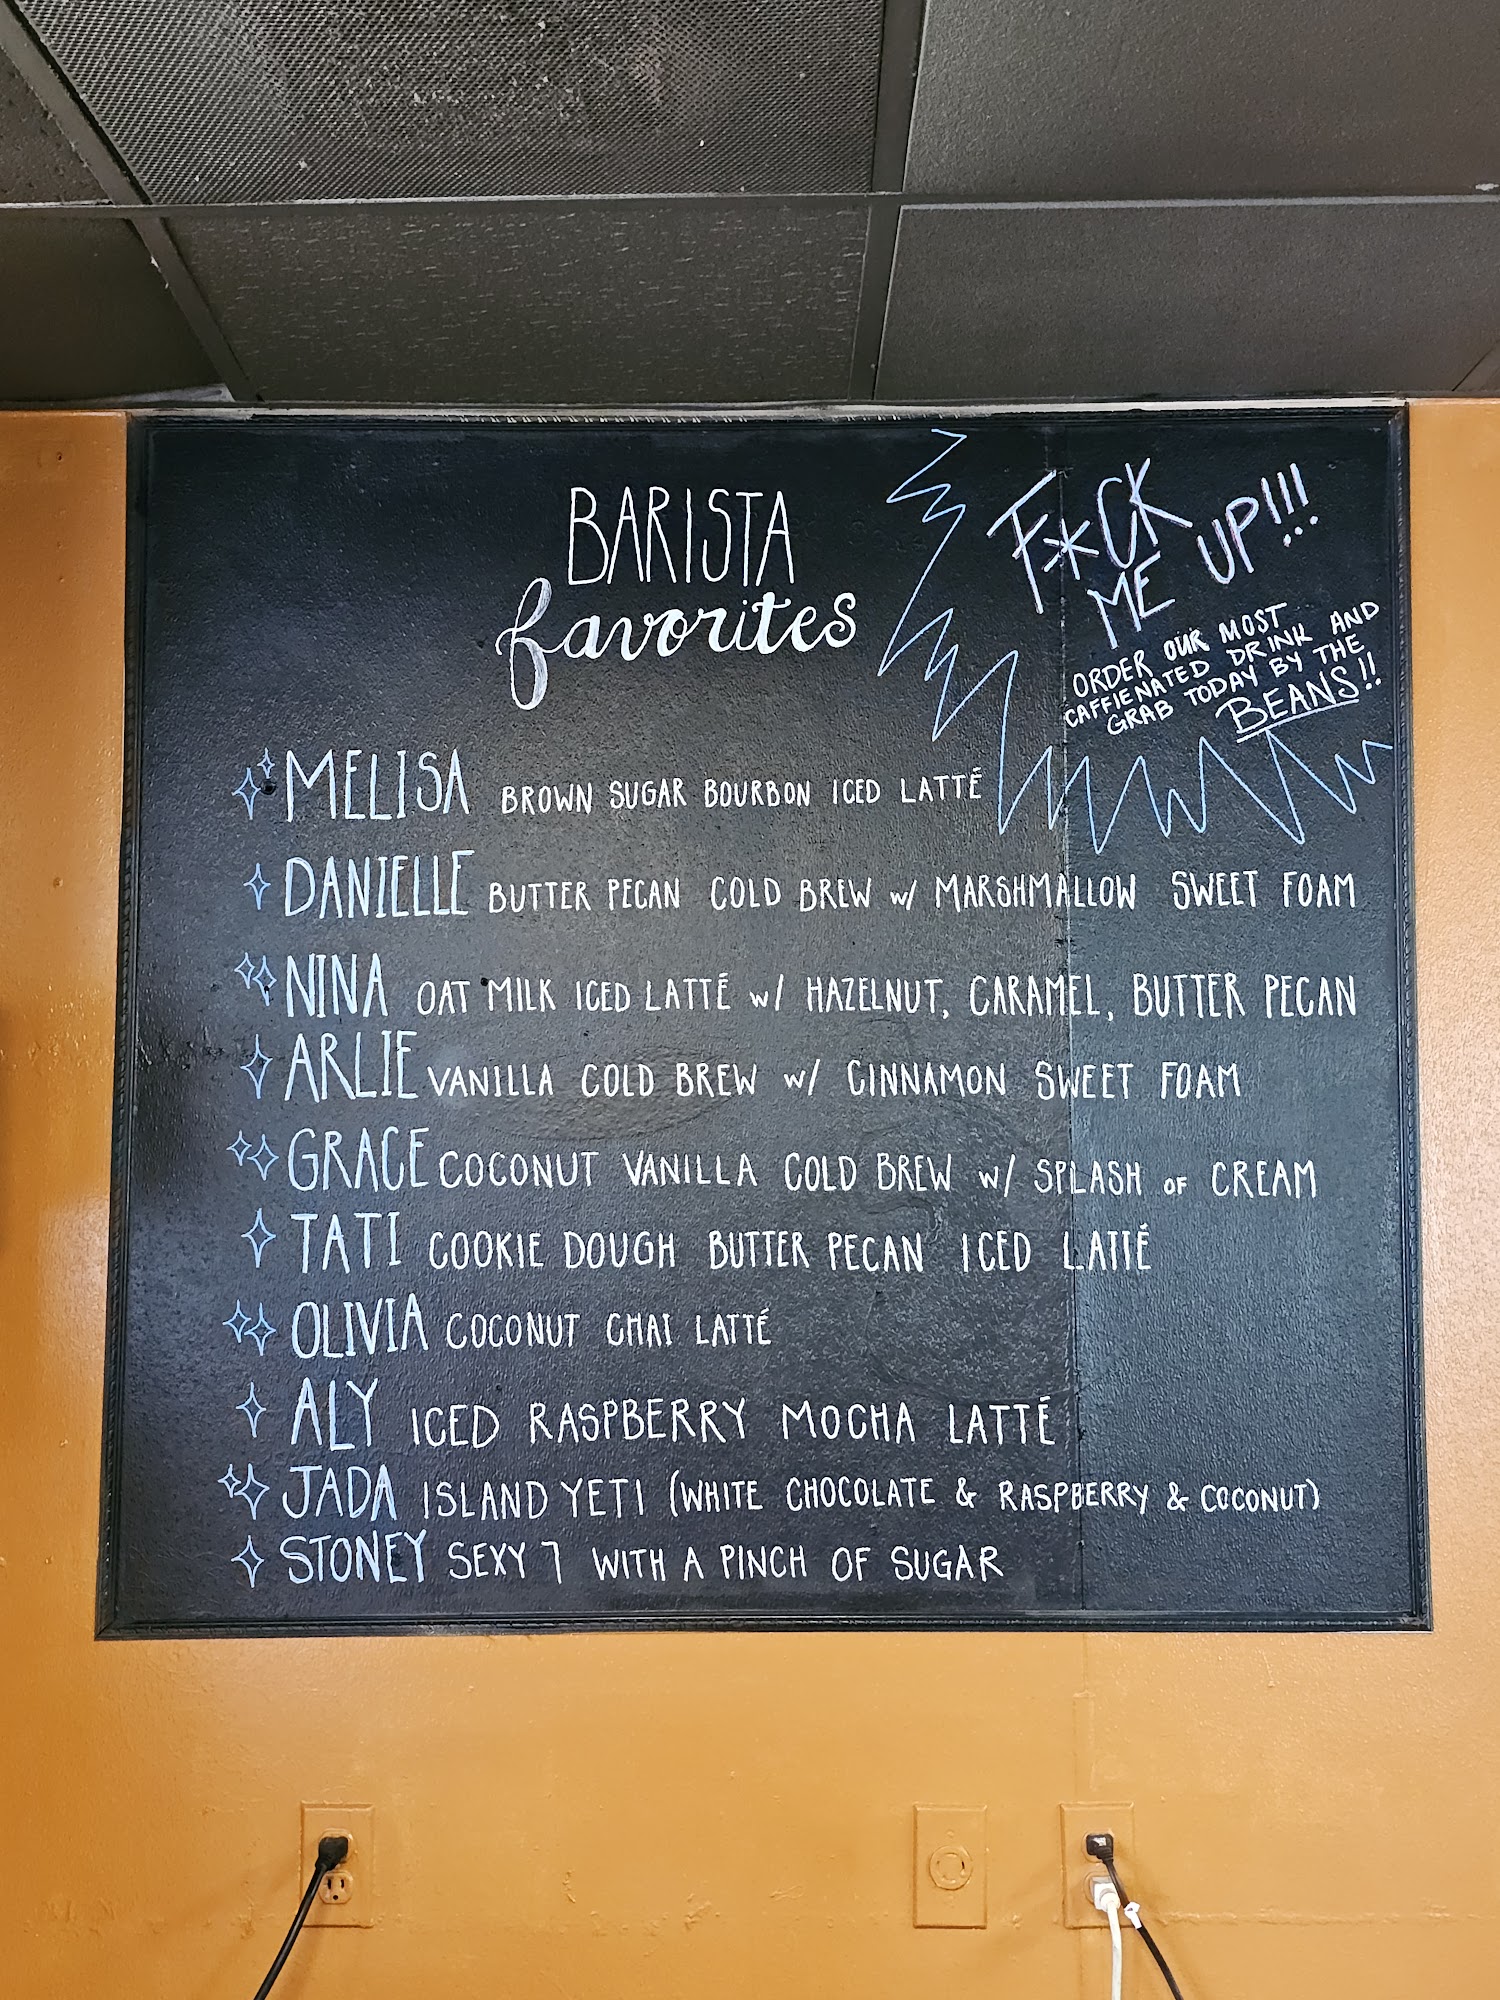 BARISTA
favorites
F*CK
ME UP!!!
ORDER OUR MOST
CAFFIENATED DRINK AND
GRAB TODAY BY THE
BEANS!!
MELISA BROWN SUGAR BOURBON ICED LATTÉ
DANIELLE BUTTER PECAN COLD BREW w/ MARSHMALLOW SWEET FOAM
NINA OAT MILK ICED LATTÉ w/ HAZELNUT, CARAMEL, BUTTER PECAN
ARLIE VANILLA COLD BREW w/ CINNAMON SWEET FOAM
GRACE COCONUT VANILLA COLD BREW w/ SPLASH OF CREAM
TATI COOKIE DOUGH BUTTER PECAN ICED LATTÉ
OLIVIA COCONUT CHAI LATTÉ
ALY ICED RASPBERRY MOCHA LATTÉ
JADA ISLAND YETI (WHITE CHOCOLATE & RASPBERRY & COCONUT)
STONEY SEXY 7 WITH A PINCH OF SUGAR